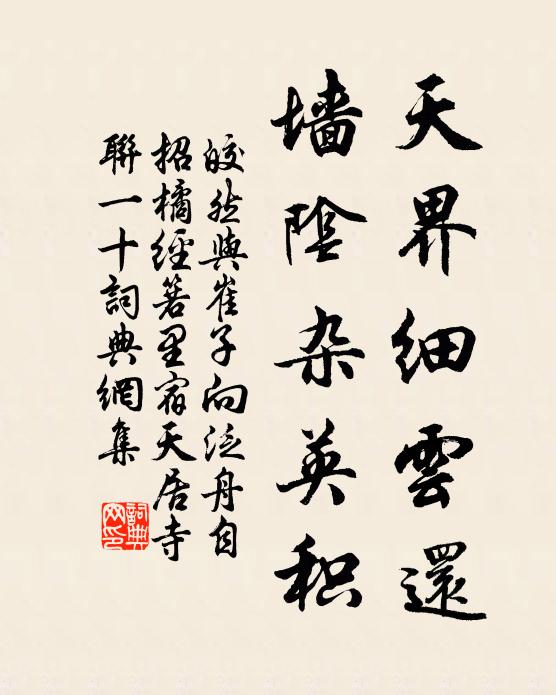 天界细雲還
墙陰杂英积
皎然與崔子向泛舟自
招橘經箬里宿天居寺
聯一十詞典網集
詞典网印